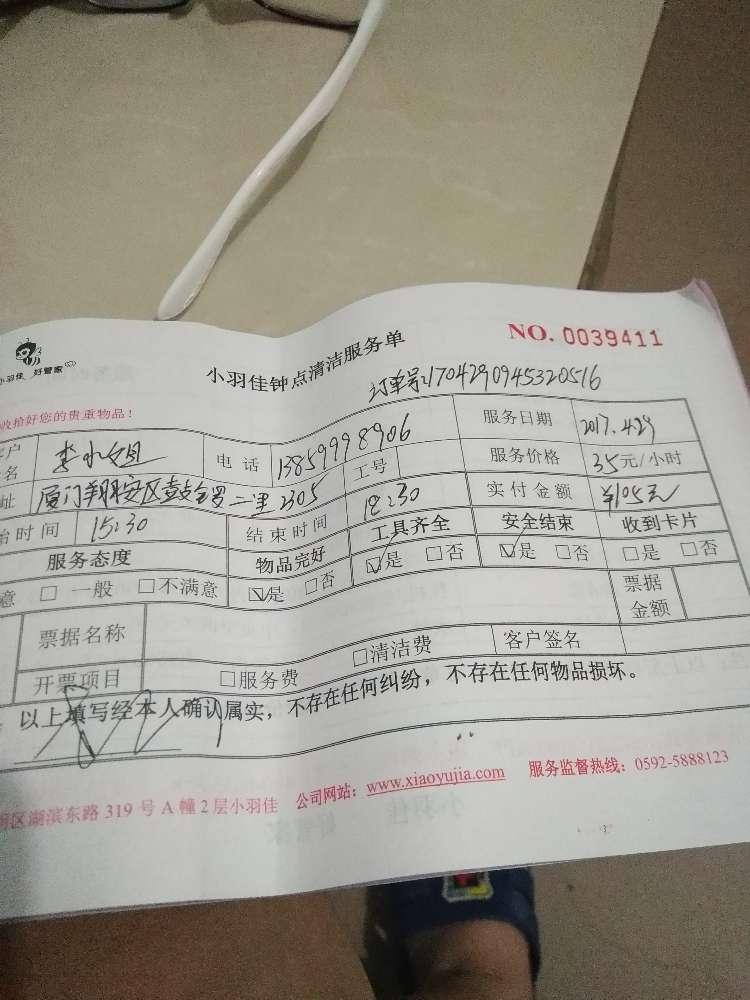 小羽佳 好管家
小羽佳钟点清洁服务单
NO. 0039411
订单号:1704290945320516
收拾好您的贵重物品!
李小姐 电话 13859998906 服务日期 2017.4.29
工号 服务价格 35元/小时
厦门翔安区 二里2305 实付金额 ¥105元
始时间 15:30 结束时间 18:30
服务态度 物品完好 工具齐全 安全结束 收到卡片
意 □ 一般 □不满意 ☑是 □否 ☑是 □否 ☑是 □否 □是 □否
票据名称 票据金额
开票项目 □服务费 □清洁费 客户签名
以上填写经本人确认属实,不存在任何纠纷,不存在任何物品损坏。
明区湖滨东路 319 号 A 幢 2 层小羽佳 公司网站:www.xiaoyujia.com 服务监督热线:0592-5888123